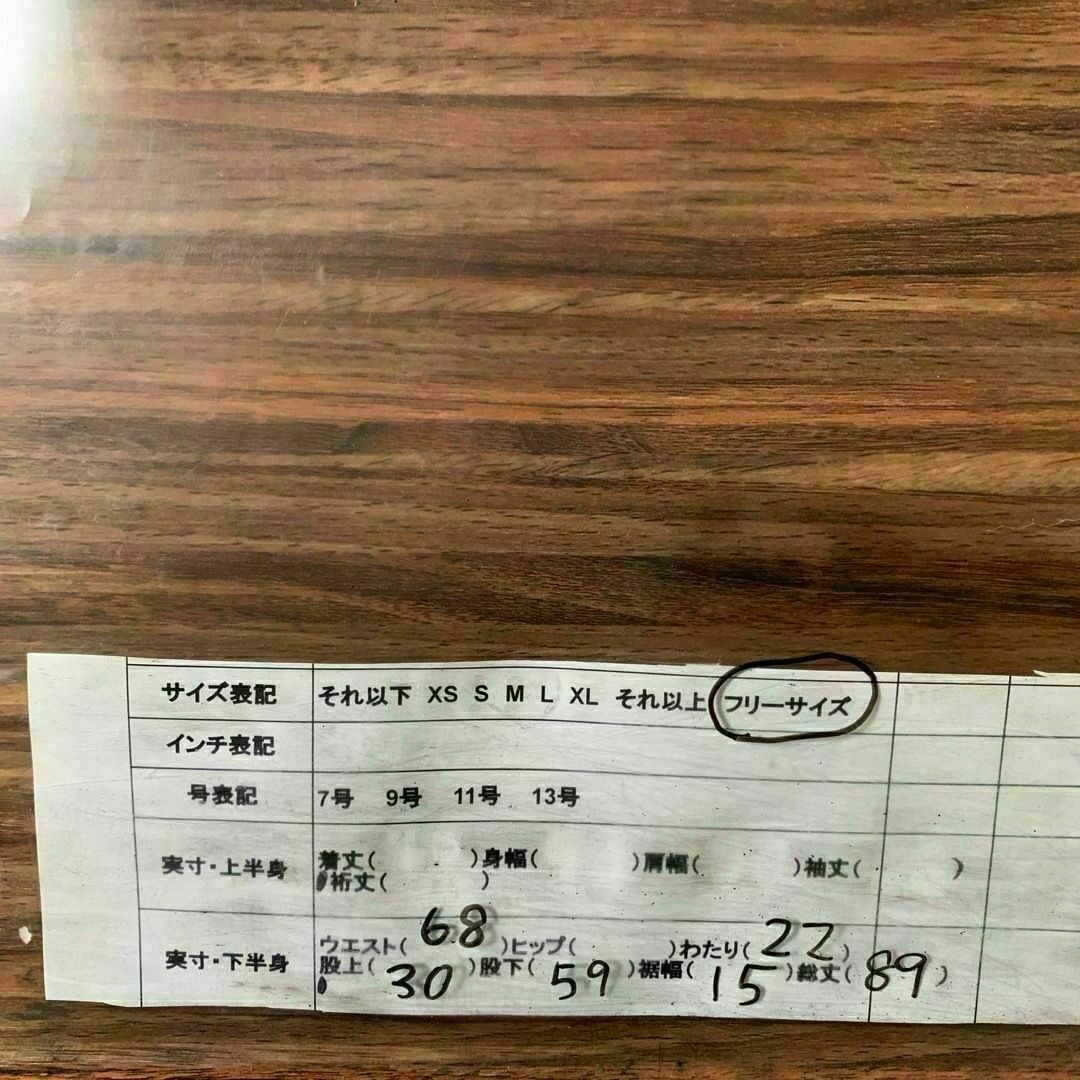 サイズ表記 それ以下 XS S M L XL それ以上 フリーサイズ
インチ表記
号表記 7号 9号 11号 13号
実寸・上半身 着丈( )身幅( )肩幅( )袖丈( )
裄丈( )
実寸・下半身 ウエスト( 68 )ヒップ( )わたり( 22 )
股上( 30 )股下( 59 )裾幅( 15 )総丈( 89 )